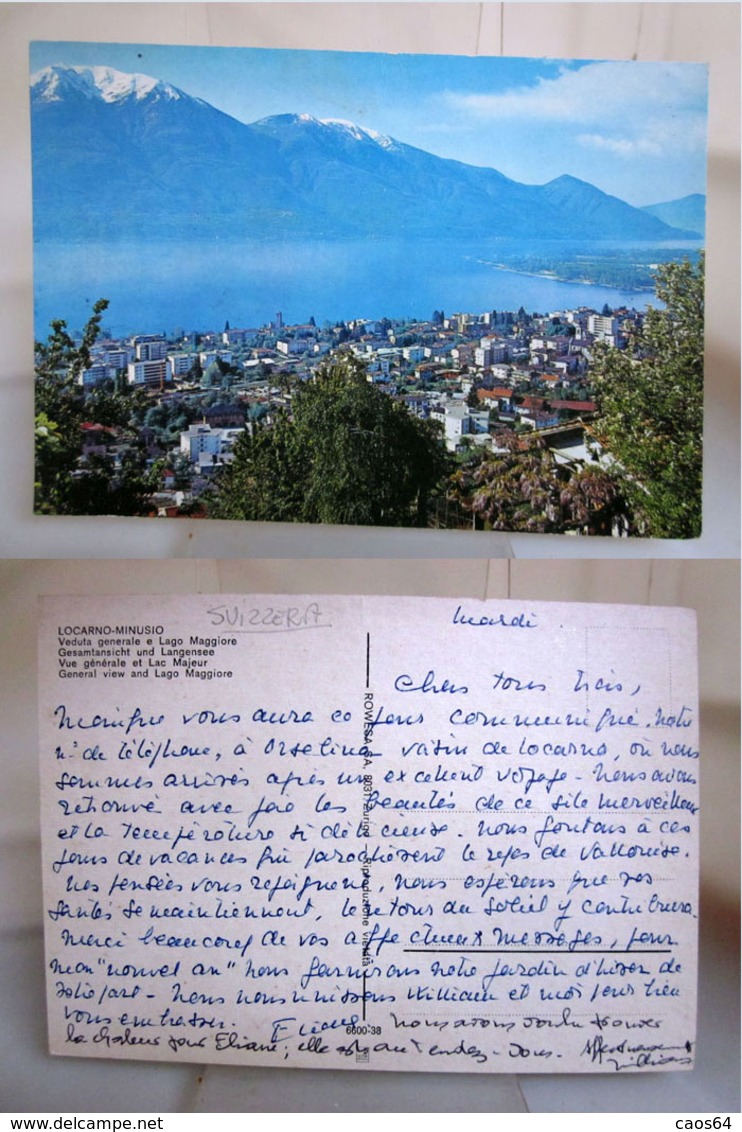 SVIZZERA
LOCARNO-MINUSIO
Veduta generale e Lago Maggiore
Gesamtansicht und Langensee
Vue générale et Lac Majeur
General view and Lago Maggiore
ROWESA S.A. 8031 Zurigo Riproduzione vietata
6600-38
Mardi
Chers tous trois,
vous aura ce jour communiqué notre
n° de téléphone, à Orselina voisin de Locarno, où nous
sommes arrivés après un excellent voyage - Nous avons
retrouvé avec joie les beautés de ce site merveilleux
et la température si délicieuse. Nous goutons à ces
jours de vacances qui parachèvent le repos de Vallouise.
Nos pensées vous rejoignent, nous espérons que vos
santés se maintiennent, le retour du soleil y contribuera.
Merci beaucoup de vos affectueux messages, pour
mon "nouvel an" nous garnirons notre jardin d'hiver de
- Nous nous unissons William et moi pour bien
vous embrasser. Eliane Nous avons voulu trouver
la chaleur pour Eliane; elle est au rendez-vous. Affectueusement
William
delcampe.net
caos64